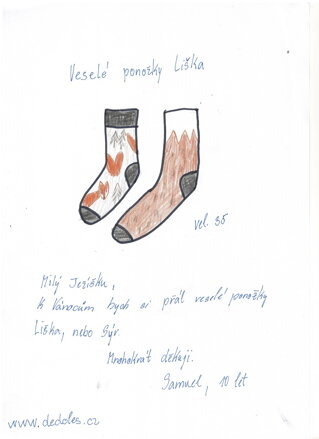 Veselé ponožky Liška
vel. 35
Milý Ježíšku,
k Vánocům bych si přál veselé ponožky
Liška, nebo Sýr.
Mnohokrát děkuji.
Samuel, 10 let
www.dedoles.cz